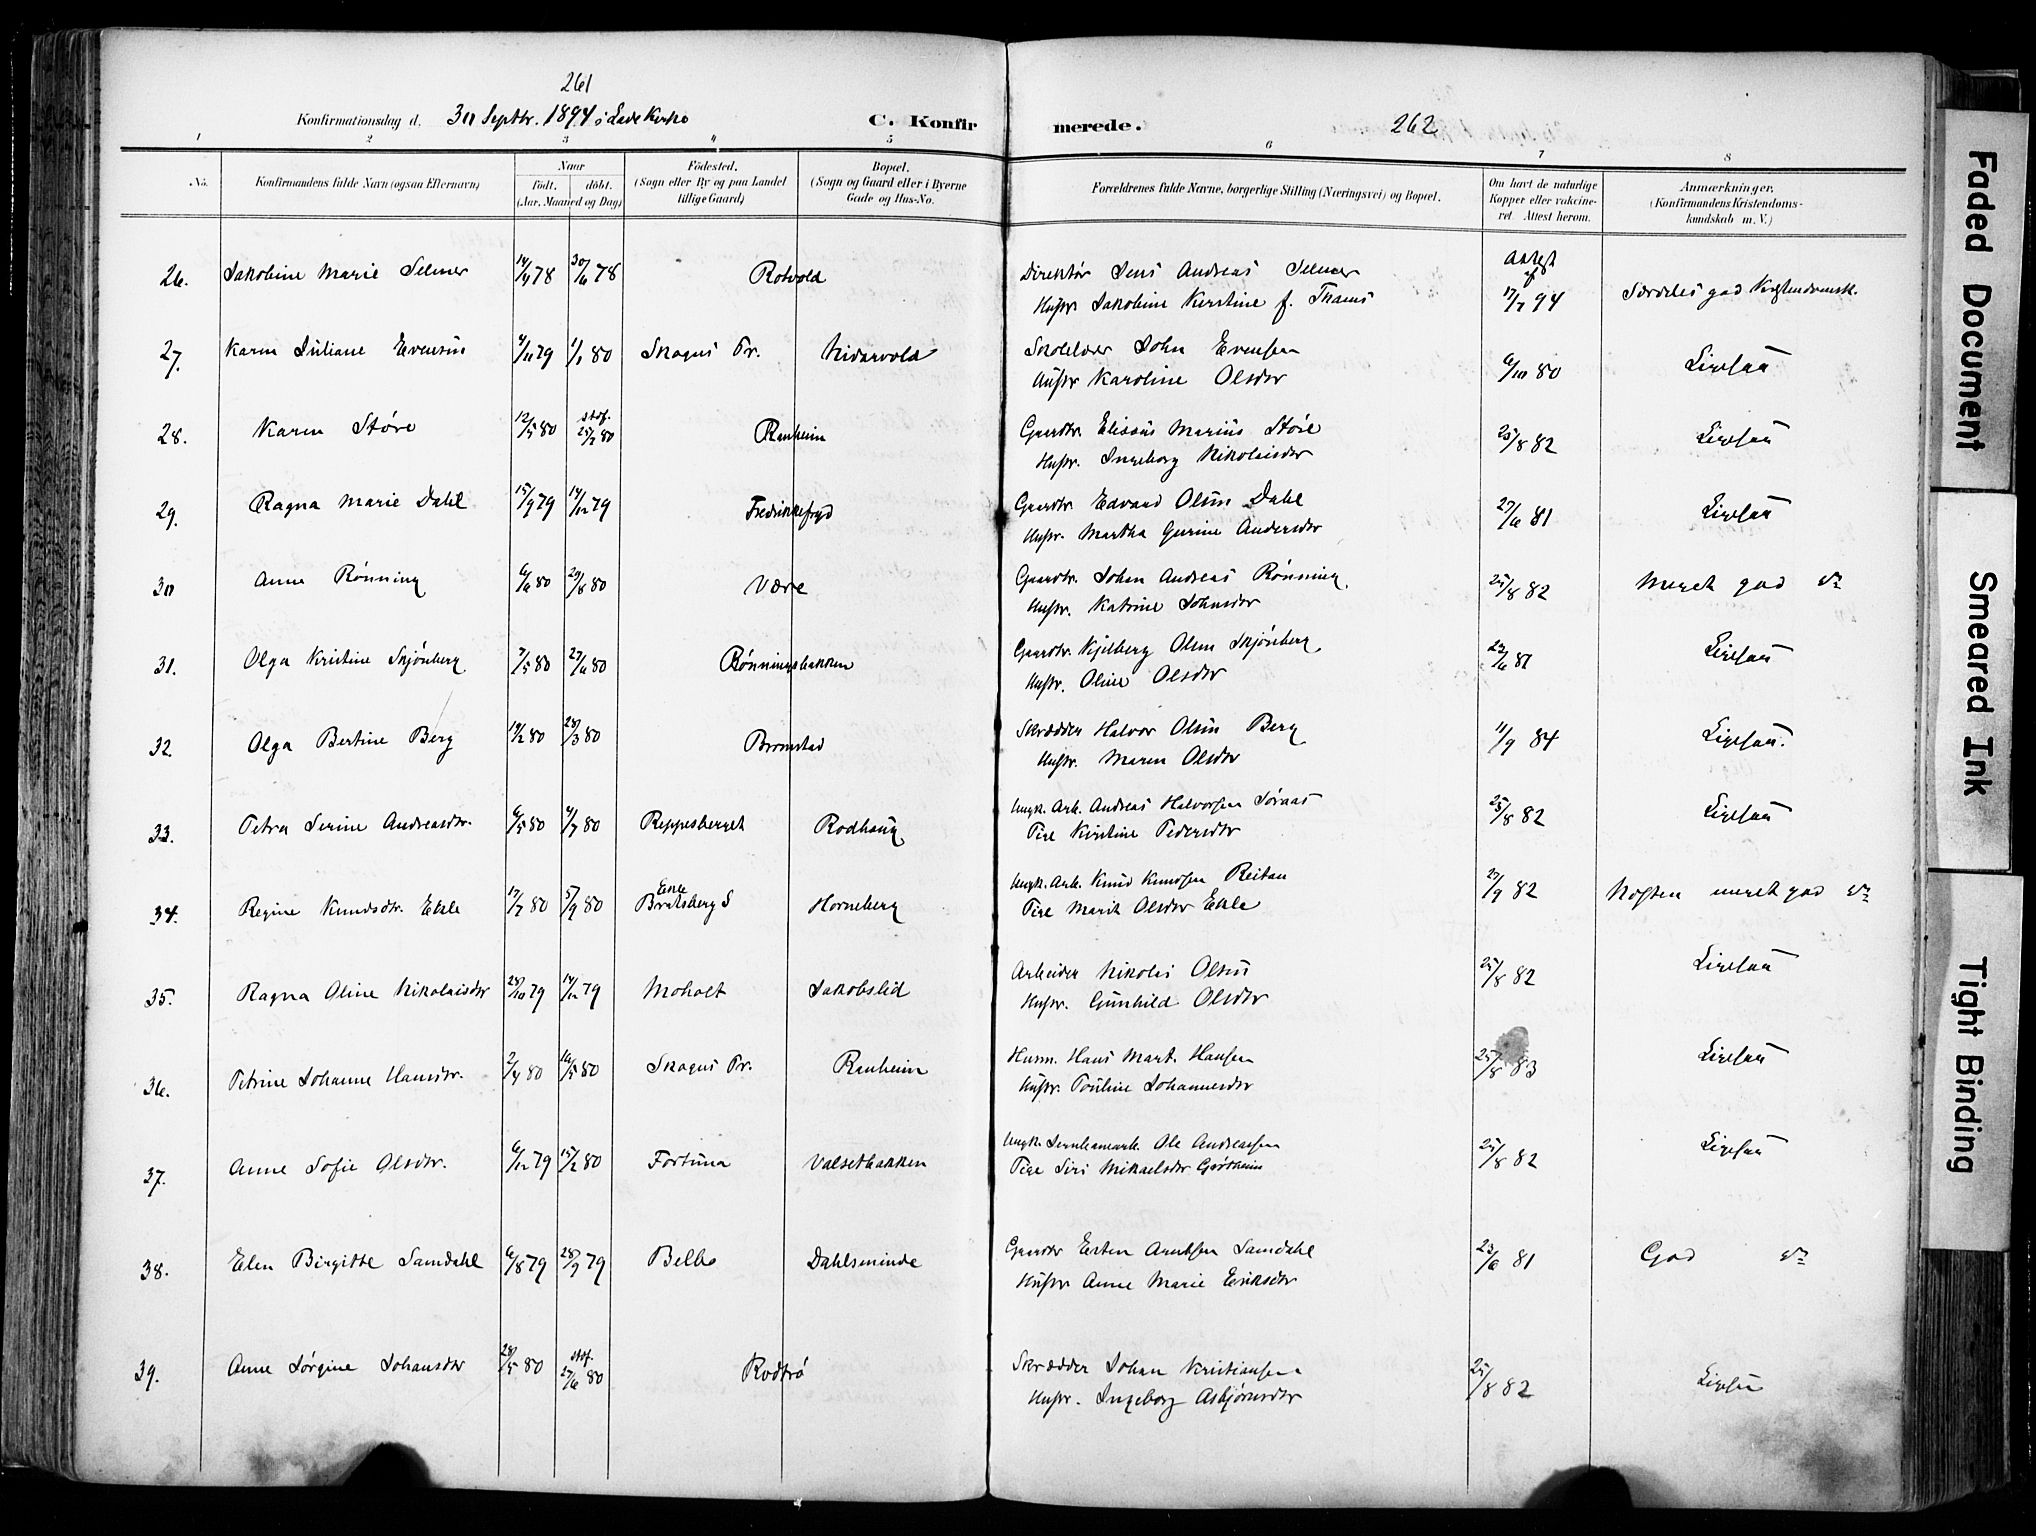 261
Konfirmationsdag d. 30 Septbr. 1894 i Lade Kirke
C. Konfir
merede.
262
1 2 3 4 5 6 7 8
No.
Konfirmandens fulde Navn (ogsaa Efternavn)
Naar
födt. döbt.
(Aar, Maaned og Dag)
Födested.
(Sogn eller By og paa Landet
tillige Gaard)
Bopæl.
(Sogn og Gaard eller i Byerne
Gade og Hus-No.
Forældrenes fulde Navne, borgerlige Stilling (Næringsvei) og Bopæl.
Om havt de naturlige
Kopper eller vakcine-
ret. Attest herom.
Anmærkninger.
(Konfirmandens Kristendoms-
kundskab m. V.)
26. Jakobine Marie Selmer 14/4 78 30/6 78 Rotvold Direktør Jens Andreas Selmer Attest af 17/7 94 Særdeles god Kristendomsk.
Hustr. Jakobine Kirstine f. Thams
27. Karen Juliane Evensen 4/11 79 1/1 80 Skogns Pr. Nidarvold Skolelærer John Evensen 6/10 80 Ligesaa
Hustr Karoline Olsdtr
28. Karen Støre 12/5 80 stdf. 25/7 80 Ranheim Gaardbr. Elisæus Marius Støre 25/8 82 Ligesaa
Hustr. Ingeborg Nikolaisdtr
29. Ragna Marie Dahl 15/9 79 14/12 79 Fredrikkefryd Gaardbr. Edvard Olsen Dahl 27/6 81 Ligesaa
Hustr. Martha Gurine Andersdtr
30 Anne Rønning 6/6 80 29/8 80 Være Gaardbr. Johan Andreas Rønning 25/8 82 Meget god do
Hustr. Katrine Johnsdtr
31. Olga Kristine Skjønberg 7/5 80 27/6 80 Rønningsbakken Gaardbr. Kjelberg Olsen Skjønberg 23/6 81 Ligesaa
Hustr. Oline Olsdtr
32. Olga Bertine Berg 19/2 80 28/3 80 Bromstad Skrædder Halvor Olsen Berg 11/9 84 Ligesaa.
Hustr. Maren Olsdtr
33. Petra Serine Andreasdtr. 6/5 80 4/7 80 Reppesberget Rodhaug Ungk. Arb. Andreas Halvorsen Søraas 25/8 82 Ligesaa
Pige Kirstine Pedersdtr
34. Regine Knudsdtr. Ekle 17/7 80 5/9 80 Ekle Bratsberg S Horneberg Ungk. Arb. Knud Knudsen Reitan 27/9 82 Næsten meget god do
Pige Marit Olsdtr Ekle
35. Ragna Oline Nikolaisdtr 28/10 79 14/12 79 Moholt Jakobslid Arbeider Nikolai Olsen 25/8 82 Ligesaa
Hustr. Gunhild Olsdtr
36. Petrine Johanne Hansdtr. 2/4 80 16/5 80 Skogns Pr. Ranheim Husm. Hans Mart. Hansen 25/8 83 Ligesaa
Hustr. Pauline Johannesdtr
37. Anne Sofie Olsdtr. 6/12 79 15/2 80 Fortuna Valsetbakken Ungk. Jernbanearb. Ole Andreassen 25/8 82 Ligesaa
Pige Siri Mikaelsdtr
38. Elen Birgitte Samdahl 6/8 79 28/9 79 Belbo Dahlsminde Gaardbr Esten Arntsen Samdahl 23/6 81 God do
Hustr Anne Marie Eriksdtr
39. Anne Jørgine Johansdtr 28/5 80 stdf. 27/6 80 Rodtrø Skrædder Johan Kristiansen 25/8 82 Ligesaa
Hustr. Ingeborg Asbjørnsdtr
Faded Document
Smeared Ink
Tight Binding